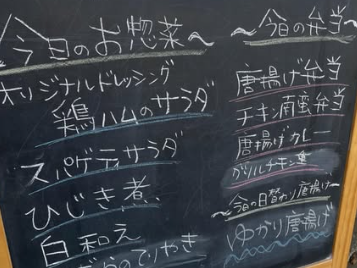 今日のお惣菜〜
オリジナルドレッシング
鶏ハムのサラダ
スパゲティサラダ
ひじき煮
白和え
のてりやき
〜今日の弁当〜
唐揚げ弁当
チキン南蛮弁当
唐揚げカレー
グリルチキン
〜今日の日替わり唐揚げ〜
ゆかり唐揚げ